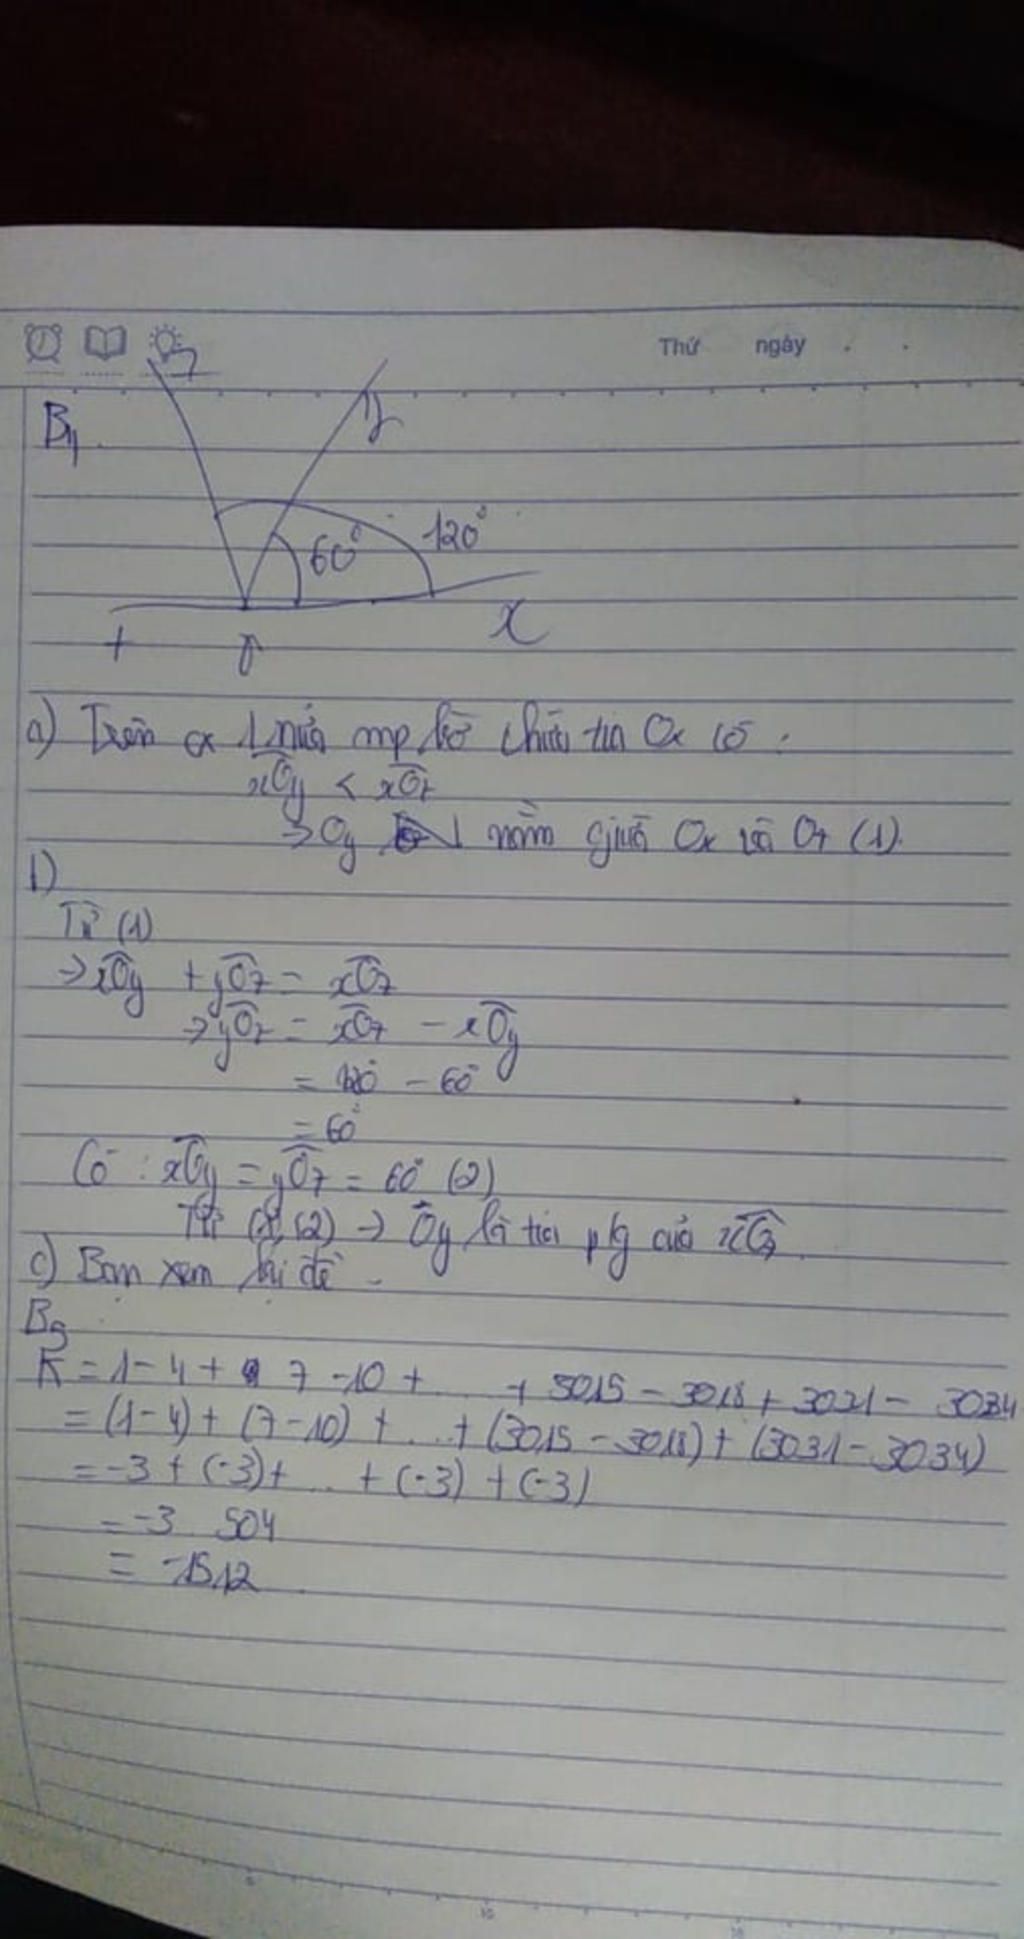 Thứ ngày
B4
z
y
60° 120°
t O x
a) Trên cx 1 nửa mp bờ chứa tia Ox có :
xOy < xOz
→ Oy nằm giữa Ox và Oz (1)
b)
Từ (1)
→ xOy + yOz = xOz
→ yOz = xOz - xOy
= 120° - 60°
= 60°
Có : xOy = yOz = 60° (2)
Từ (1), (2) → Oy là tia p/g của xOz
c) Bạn xem lại đề.
B5
= 1 - 4 + 7 - 10 + ... + 3015 - 3018 + 3031 - 3034
= (1 - 4) + (7 - 10) + ... + (3015 - 3018) + (3031 - 3034)
= -3 + (-3) + ... + (-3) + (-3)
= -3 . 504
= -1512
5
10